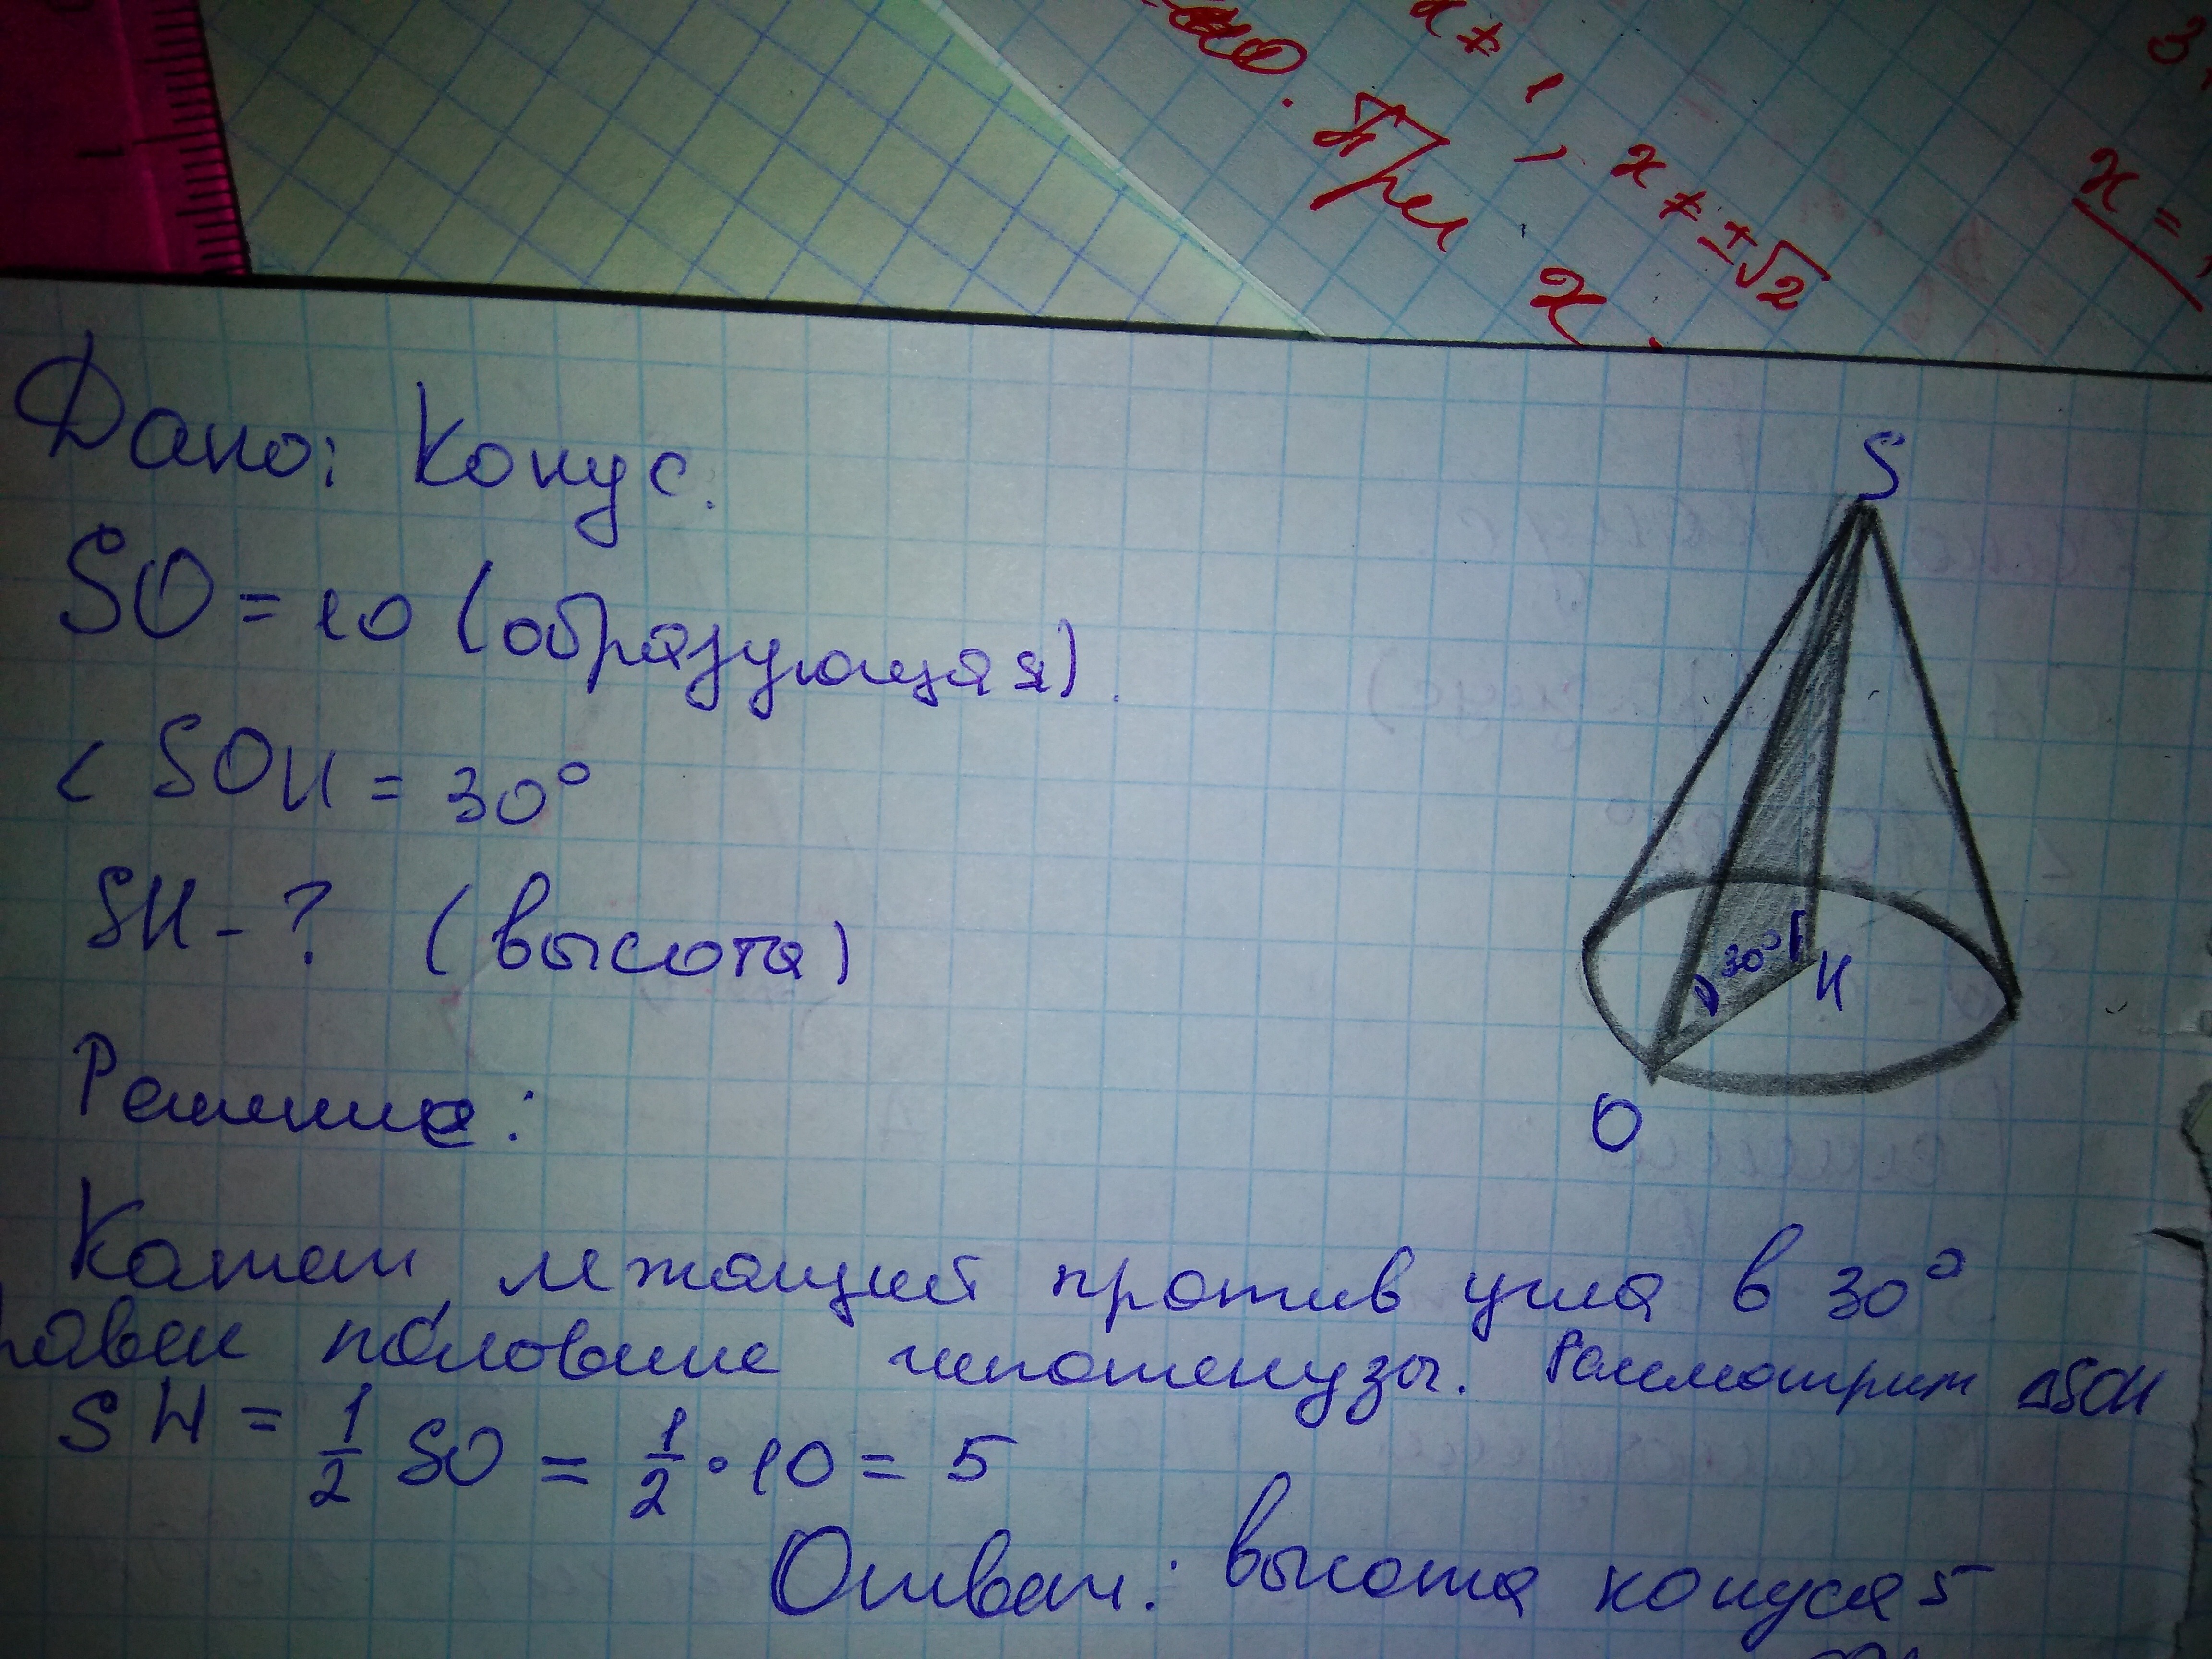 x ≠ 1, x ≠ ±√2
При x
x =
Дано: Конус.
SO = 10 (образующая).
< SOH = 30°
SH - ? (высота)
Решение:
Катет, лежащий против угла в 30°
равен половине гипотенузы. Рассмотрим ΔSOH
SH = 1/2 SO = 1/2 · 10 = 5
Ответ: высота конуса 5
S
30°
H
O